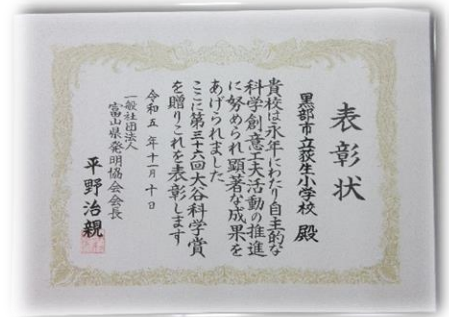 表彰状
黒部市立荻生小学校 殿
貴校は永年にわたり自主的な
科学創意工夫活動の推進
に努められ顕著な成果を
あげられました
ここに第三十六回大谷科学賞
を贈りこれを表彰します
令和五年十一月十日
一般社団法人
富山県発明協会会長
平野治親